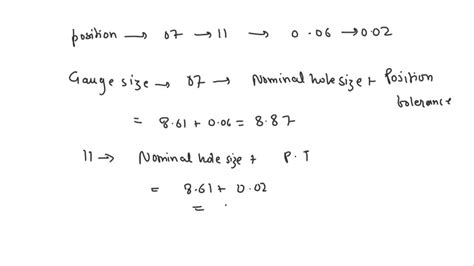 position → 07 → 11 → 0.06 → 0.02
Gauge size → 07 → Nominal hole size + Position
tolerance
= 8.61 + 0.06 = 8.87
11 → Nominal hole size + P.T
= 8.61 + 0.02
= .